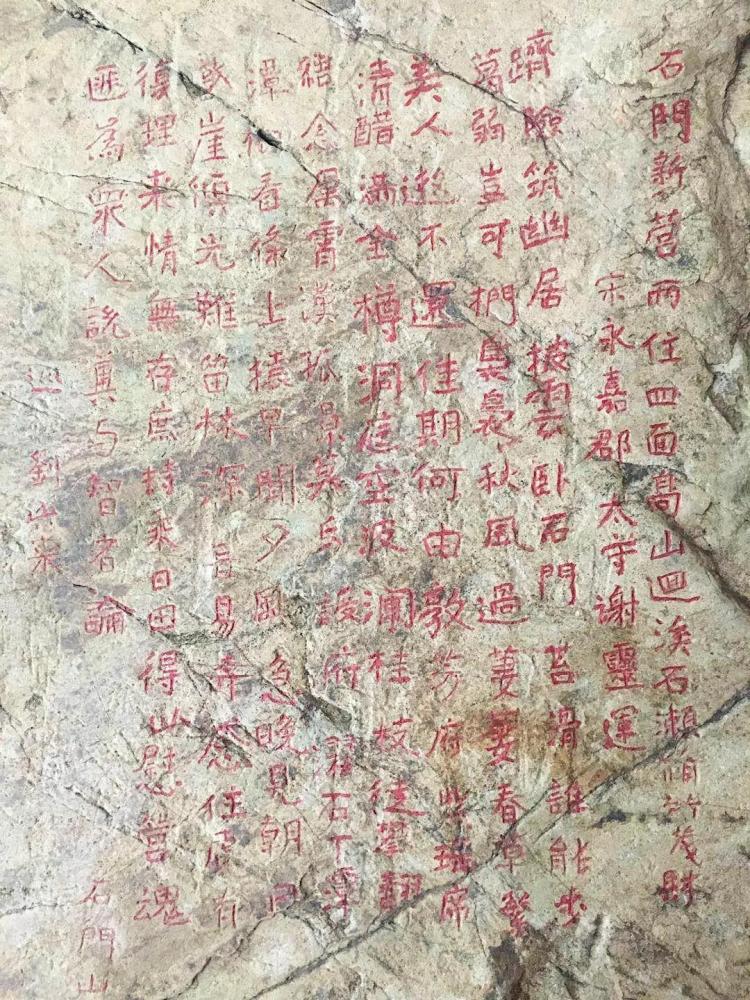 石門新營所住四面高山迴溪石瀨脩竹茂林
宋永嘉郡太守謝靈運
躋險筑幽居披雲卧石門苔滑誰能步
葛弱豈可捫裊裊秋風過萋萋春草繁
美人遊不還佳期何由敦芳席
清醑滿金樽洞庭空波瀾桂枝徒攀翻
結念屬霄漢孤景莫與諼府濯石下潭
潭仰看條上猿早聞夕風急晚見朝日
崖傾光難留林深音易奔感往慮有
復理來情無存庶持乘日用得以慰營魂
匪為眾人說冀與智者論
石門山
劉山泉